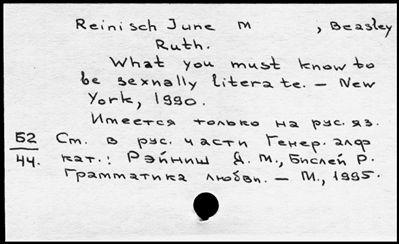 Reinisch June M , Beasley
Ruth.
What you must know to
be sexnally literate. – New
York, 1990.
Имеется только на рус. яз.
Б2 См. в рус. части Генер. алф
44. кат.: Рэйниш Д. М., Бислей Р.
Грамматика любви. – М., 1995.